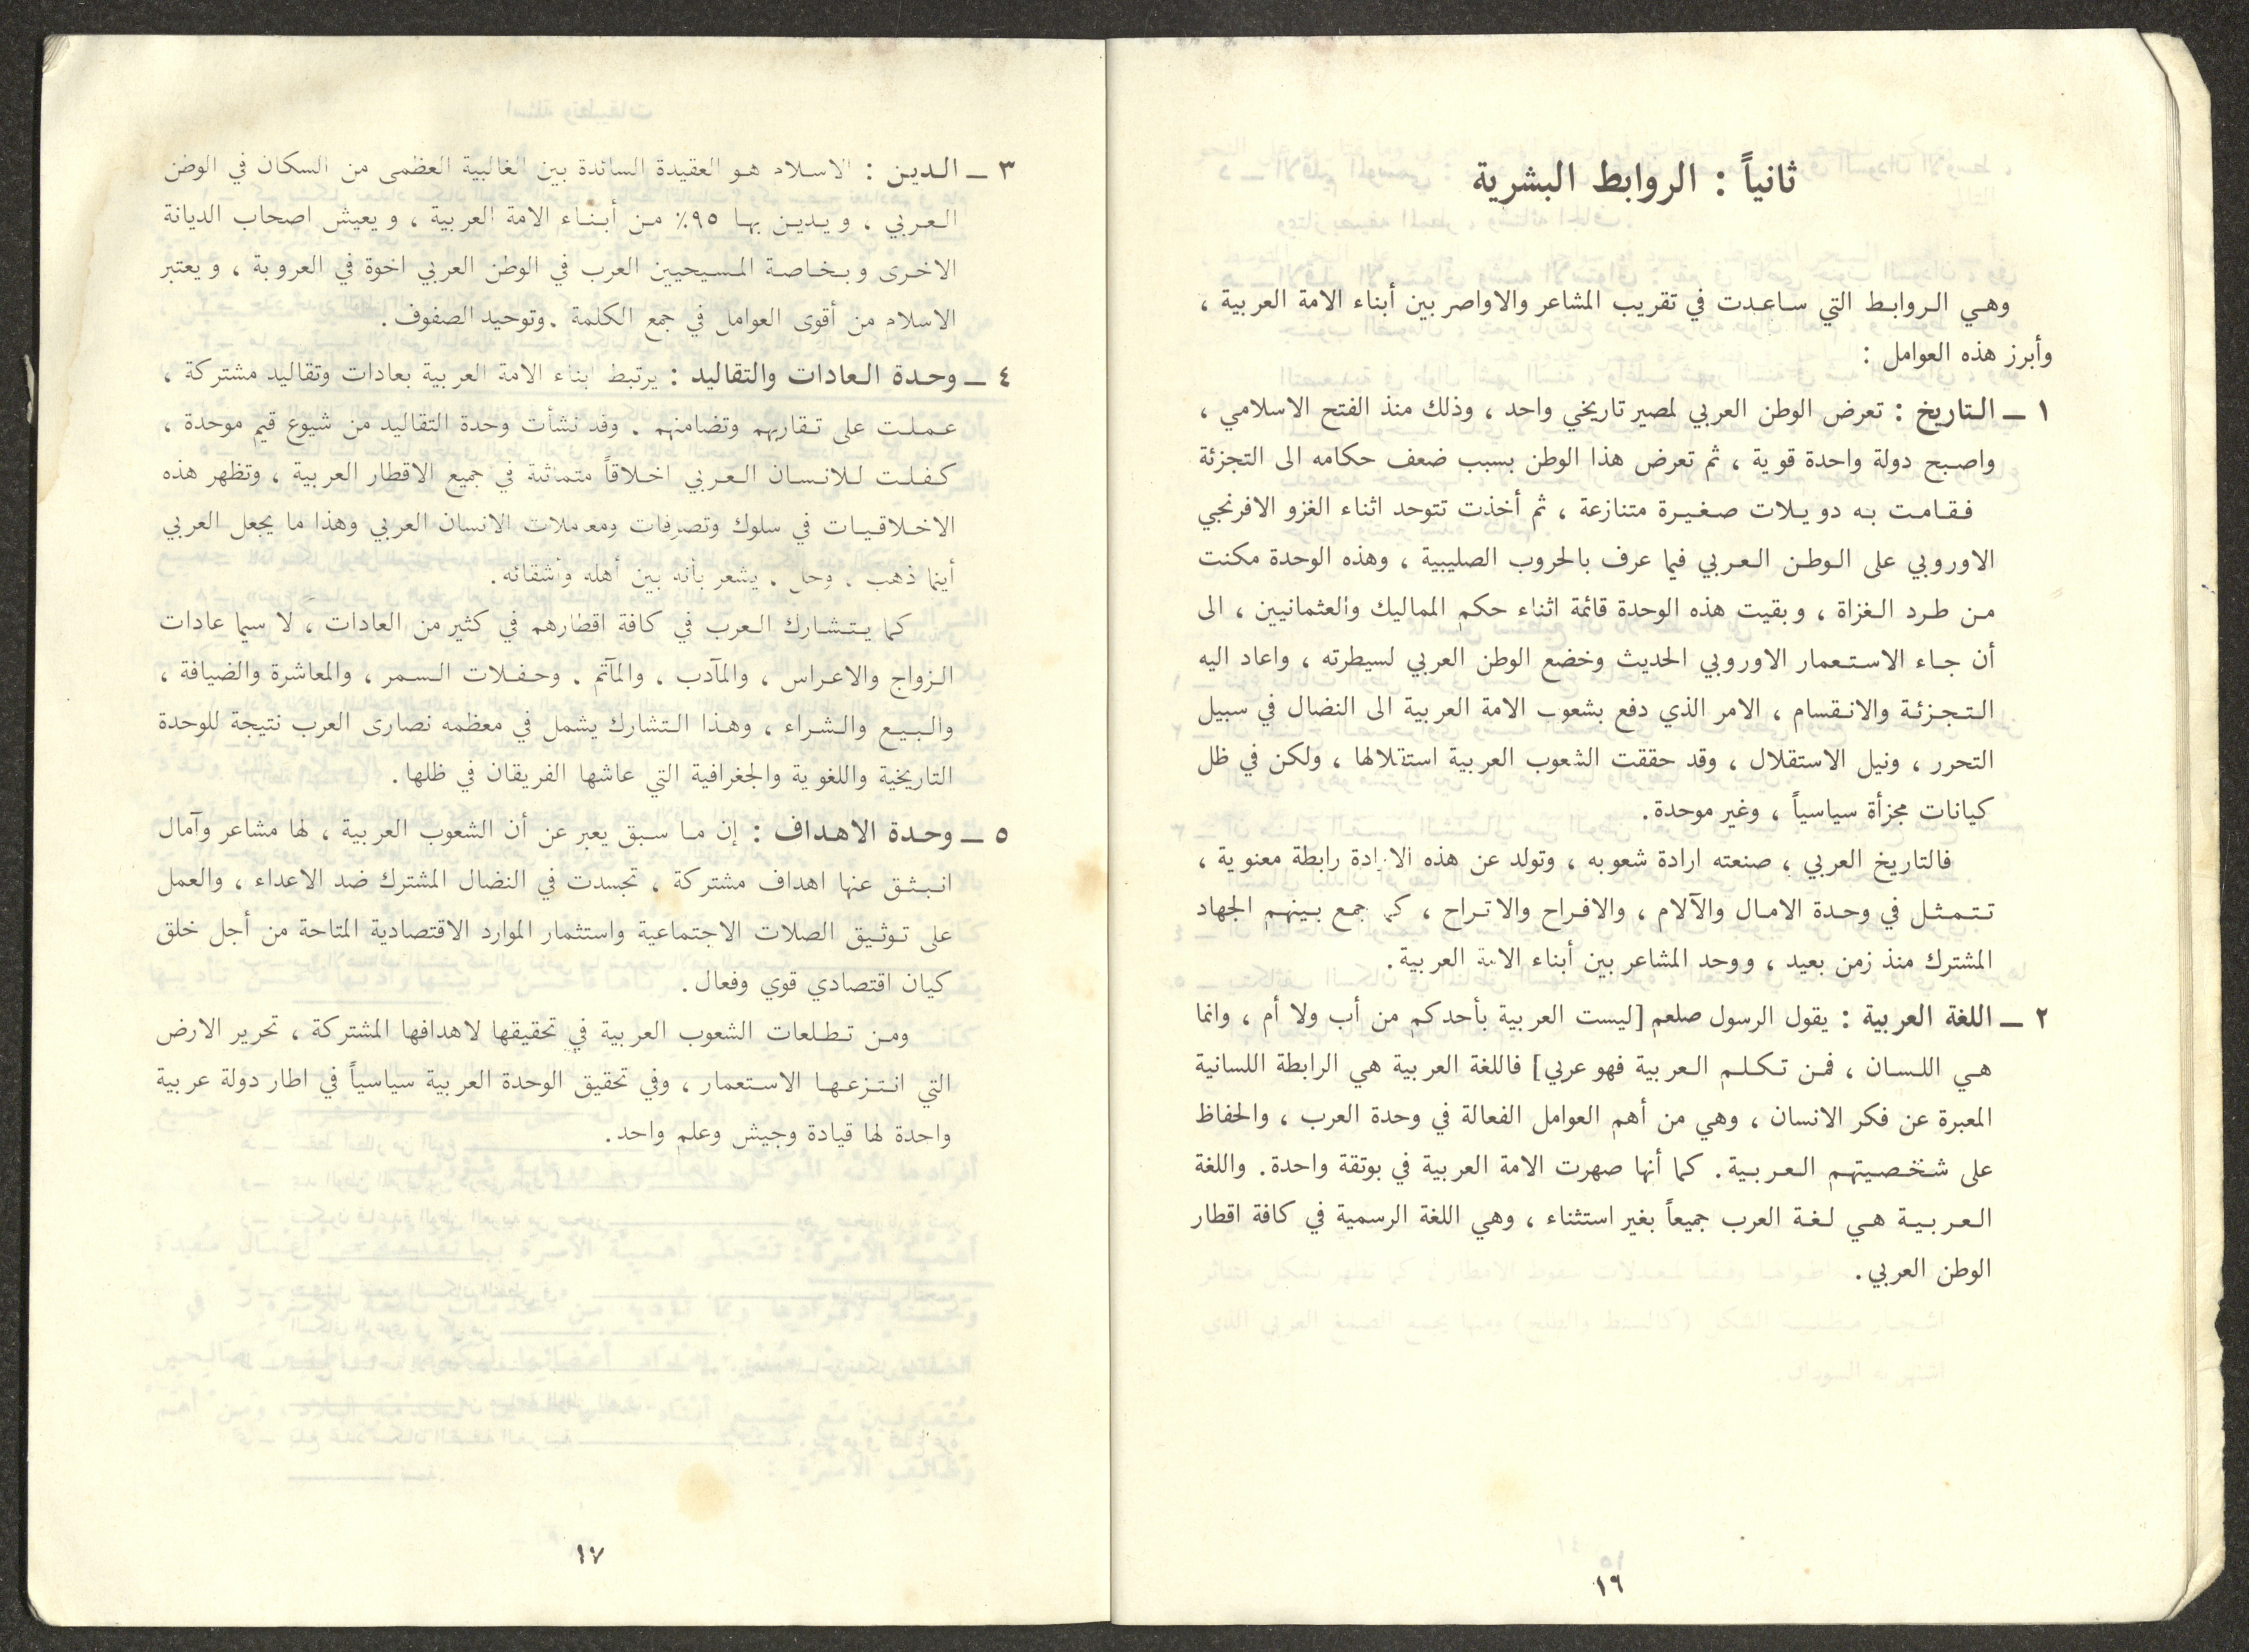 ثانياً : الروابط البشرية
وهي الروابط التي ساعدت في تقريب المشاعر والاواصر بين أبناء الامة العربية ،
وأبرز هذه العوامل :
١ ـ التاريخ : تعرض الوطن العربي لمصير تاريخي واحد ، وذلك منذ الفتح الاسلامي ،
واصبح دولة واحدة قوية ، ثم تعرض هذا الوطن بسبب ضعف حكامه الى التجزئة
فقامت به دويلات صغيرة متنازعة ، ثم أخذت تتوحد اثناء الغزو الافرنجي
الاوروبي على الوطن العربي فيما عرف بالحروب الصليبية ، وهذه الوحدة مكنت
من طرد الغزاة ، وبقيت هذه الوحدة قائمة اثناء حكم المماليك والعثمانيين ، الى
أن جاء الاستعمار الاوروبي الحديث وخضع الوطن العربي لسيطرته ، واعاد اليه
التجزئة والانقسام ، الامر الذي دفع بشعوب الامة العربية الى النضال في سبيل
التحرر ، ونيل الاستقلال ، وقد حققت الشعوب العربية استقلالها ، ولكن في ظل
كيانات مجزأة سياسياً ، وغير موحدة.
فالتاريخ العربي ، صنعته ارادة شعوبه ، وتولد عن هذه الارادة رابطة معنوية ،
تتمثل في وحدة الامال والآلام ، والافراح والاتراح ، كما جمع بينهم الجهاد
المشترك منذ زمن بعيد ، ووحد المشاعر بين أبناء الامة العربية.
٢ ـ اللغة العربية : يقول الرسول صلعم [ليست العربية بأحدكم من أب ولا أم ، وانما
هي اللسان ، فمن تكلم العربية فهو عربي] فاللغة العربية هي الرابطة اللسانية
المعبرة عن فكر الانسان ، وهي من أهم العوامل الفعالة في وحدة العرب ، والحفاظ
على شخصيتهم العربية. كما أنها صهرت الامة العربية في بوتقة واحدة. واللغة
العربية هي لغة العرب جميعاً بغير استثناء ، وهي اللغة الرسمية في كافة اقطار
الوطن العربي.
١٦
٣ ـ الدين : الاسلام هو العقيدة السائدة بين الغالبية العظمى من السكان في الوطن
العربي ، ويدين بها ٩٥٪ من أبناء الامة العربية ، ويعيش اصحاب الديانة
الاخرى وبخاصة المسيحيين العرب في الوطن العربي اخوة في العروبة ، ويعتبر
الاسلام من أقوى العوامل في جمع الكلمة .وتوحيد الصفوف.
٤ ـ وحدة العادات والتقاليد : يرتبط ابناء الامة العربية بعادات وتقاليد مشتركة ،
عملت على تقاربهم وتضامنهم . وقد نشأت وحدة التقاليد من شيوع قيم موحدة ،
كفلت للانسان العربي اخلاقاً متماثلة في جميع الاقطار العربية ، وتظهر هذه
الاخلاقيات في سلوك وتصرفات ومعاملات الانسان العربي وهذا ما يجعل العربي
أينما ذهب . وحل . يشعر بأنه بين أهله وأشقائه.
كما يتشارك العرب في كافة اقطارهم في كثير من العادات ، لا سيما عادات
الزواج والاعراس ، والمآدب ، والمآتم . وحفلات السمر ، والمعاشرة والضيافة ،
والبيع والشراء ، وهذا التشارك يشمل في معظمه نصارى العرب نتيجة للوحدة
التاريخية واللغوية والجغرافية التي عاشها الفريقان في ظلها.
٥ ـ وحدة الاهداف : إن ما سبق يعبر عن أن الشعوب العربية ، لها مشاعر وآمال
انبثق عنها اهداف مشتركة ، تجسدت في النضال المشترك ضد الاعداء ، والعمل
على توثيق الصلات الاجتماعية واستثمار الموارد الاقتصادية المتاحة من أجل خلق
كيان اقتصادي قوي وفعال.
ومن تطلعات الشعوب العربية في تحقيقها لاهدافها المشتركة ، تحرير الارض
التي انتزعها الاستعمار ، وفي تحقيق الوحدة العربية سياسياً في اطار دولة عربية
واحدة لها قيادة وجيش وعلم واحد.
١٧